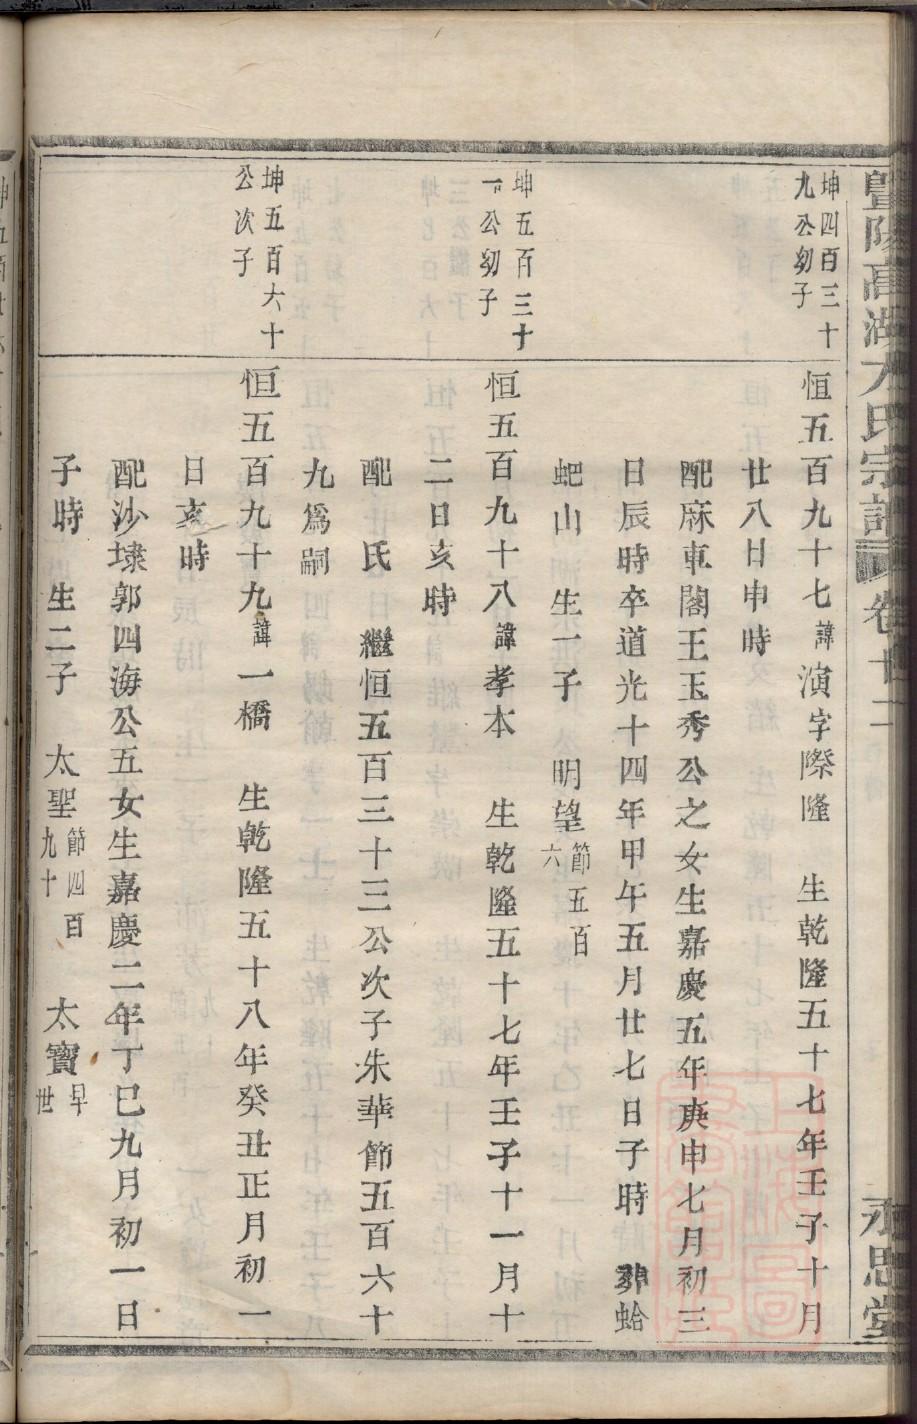 暨陽高湖方氏宗譜 卷廿二 永思堂
坤四百三十
九公幼子
恒五百九十七諱演字際隆 生乾隆五十七年壬子十月
廿八日申時
配麻車閣王玉秀公之女生嘉慶五年庚申七月初三
日辰時卒道光十四年甲午五月廿七日子時 葬蛤
蚆山 生一子 明望節五百六
坤五百三十
一公幼子
恒五百九十八諱孝本 生乾隆五十七年壬子十一月十
二日亥時
配 氏 繼恒五百三十三公次子朱華節五百六十
九爲嗣
坤五百六十
公次子
恒五百九十九諱一橋 生乾隆五十八年癸丑正月初一
日亥時
配沙埭郭四海公五女生嘉慶二年丁巳九月初一日
子時 生二子 太聖節四百九十 太寶早世